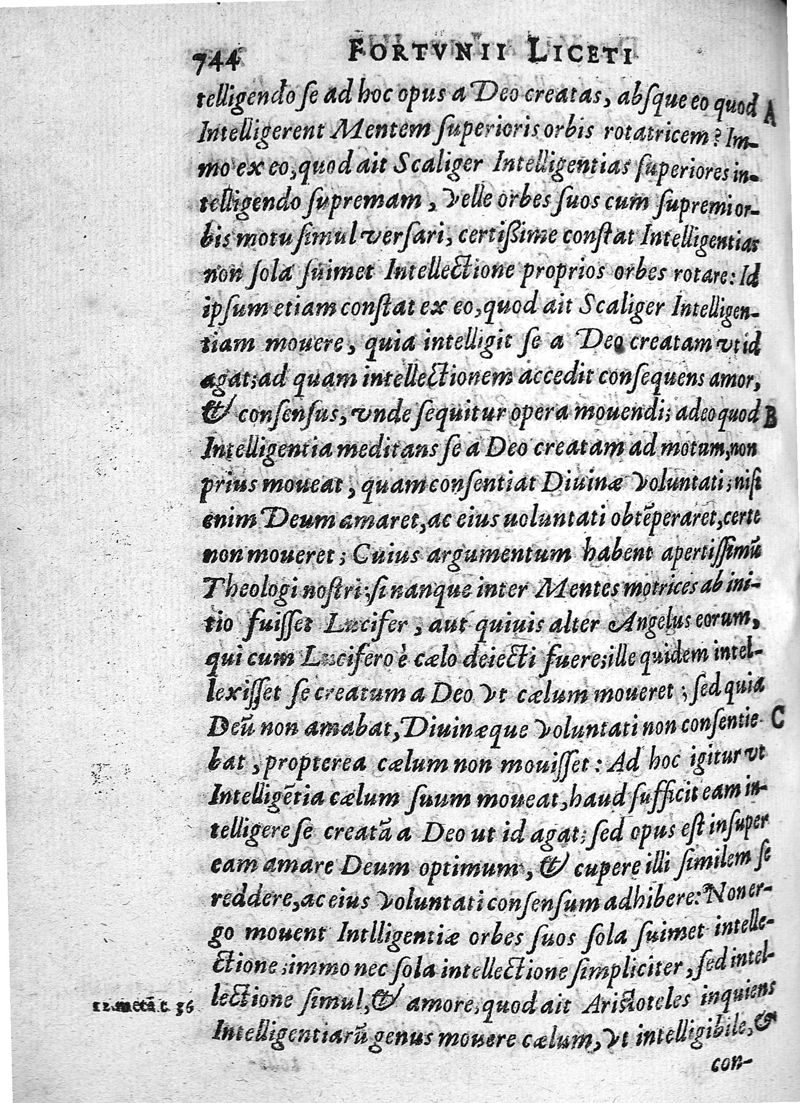 744 FORTVNII LICETI
telligendo se ad hoc opus a Deo creatas, absque eo quod A
Intelligerent Mentem superioris orbis rotatricem? Im-
mo ex eo, quod ait Scaliger Intelligentias superiores in-
telligendo supremam, velle orbes suos cum supremi or-
bis motu simul versari, certißime constat Intelligentias
non sola suimet Intellectione proprios orbes rotare: Id
ipsum etiam constat ex eo, quod ait Scaliger Intelligen-
tiam mouere, quia intelligit se a Deo creatam vt id
agat; ad quam intellectionem accedit consequens amor,
& consensus, vnde sequitur opera mouendi; adeo quod B
Intelligentia meditans se a Deo creatam ad motum, non
prius moueat, quam consentiat Diuinæ voluntati; nisi
enim Deum amaret, ac eius uoluntati obtẽperaret, certe
non moueret; Cuius argumentum habent apertissimũ
Theologi nostri; si nanque inter Mentes motrices ab ini-
tio fuisset Lucifer, aut quiuis alter Angelus eorum,
qui cum Lucifero è cælo deiecti fuere; ille quidem intel-
lexisset se creatum a Deo vt cælum moueret; sed quia
Deũ non amabat, Diuinæque voluntati non consentie- C
bat, propterea cælum non mouisset: Ad hoc igitur vt
Intelligẽtia cælum suum moueat, haud sufficit eam in-
telligere se creatã a Deo ut id agat; sed opus est insuper
eam amare Deum optimum, & cupere illi similem se
reddere, ac eius voluntati consensum adhibere: Non er-
go mouent Intlligentiæ orbes suos sola suimet intelle-
ctione; immo nec sola intellectione simpliciter, sed intel-
12. metã. t. 36 lectione simul, & amore, quod ait Aristoteles inquiens
Intelligentiarũ genus mouere cælum, vt intelligibile, &
con-